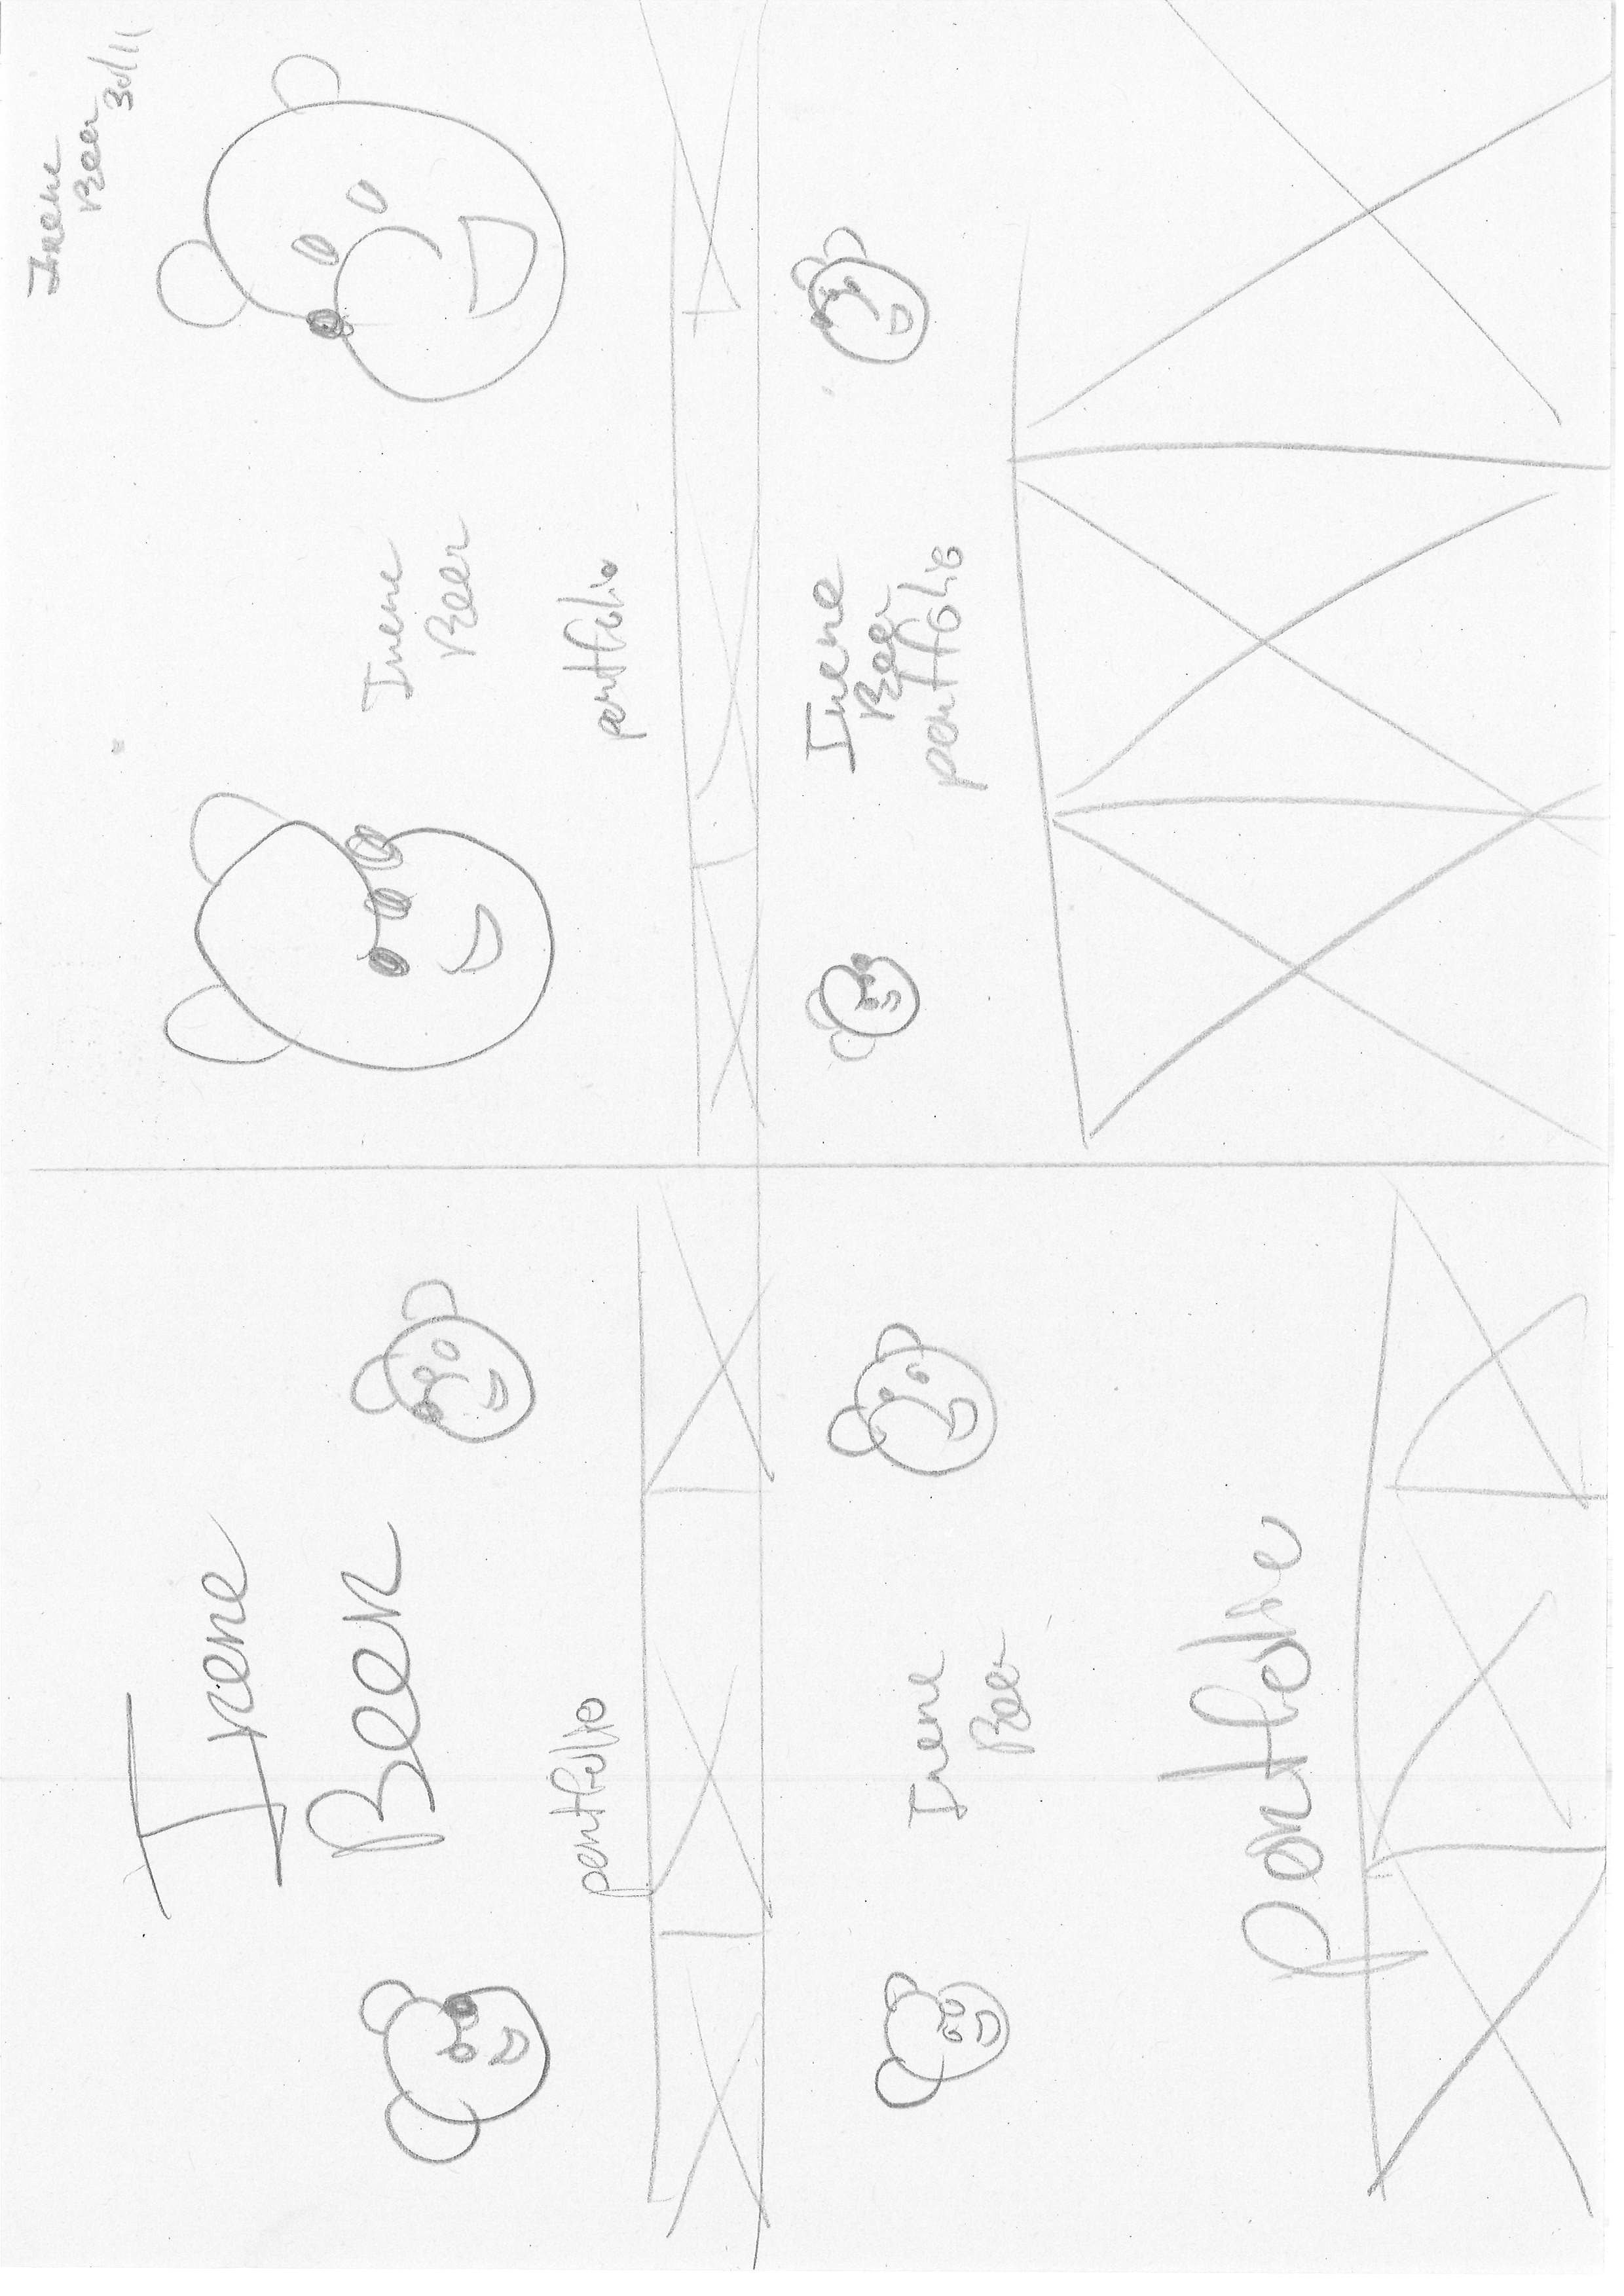 Irene
Beer
30/11
Irene
Beer
portfolio
Irene
Beer
portfolio
Irene
Beer
portfolio
Irene
Beer
portfolio